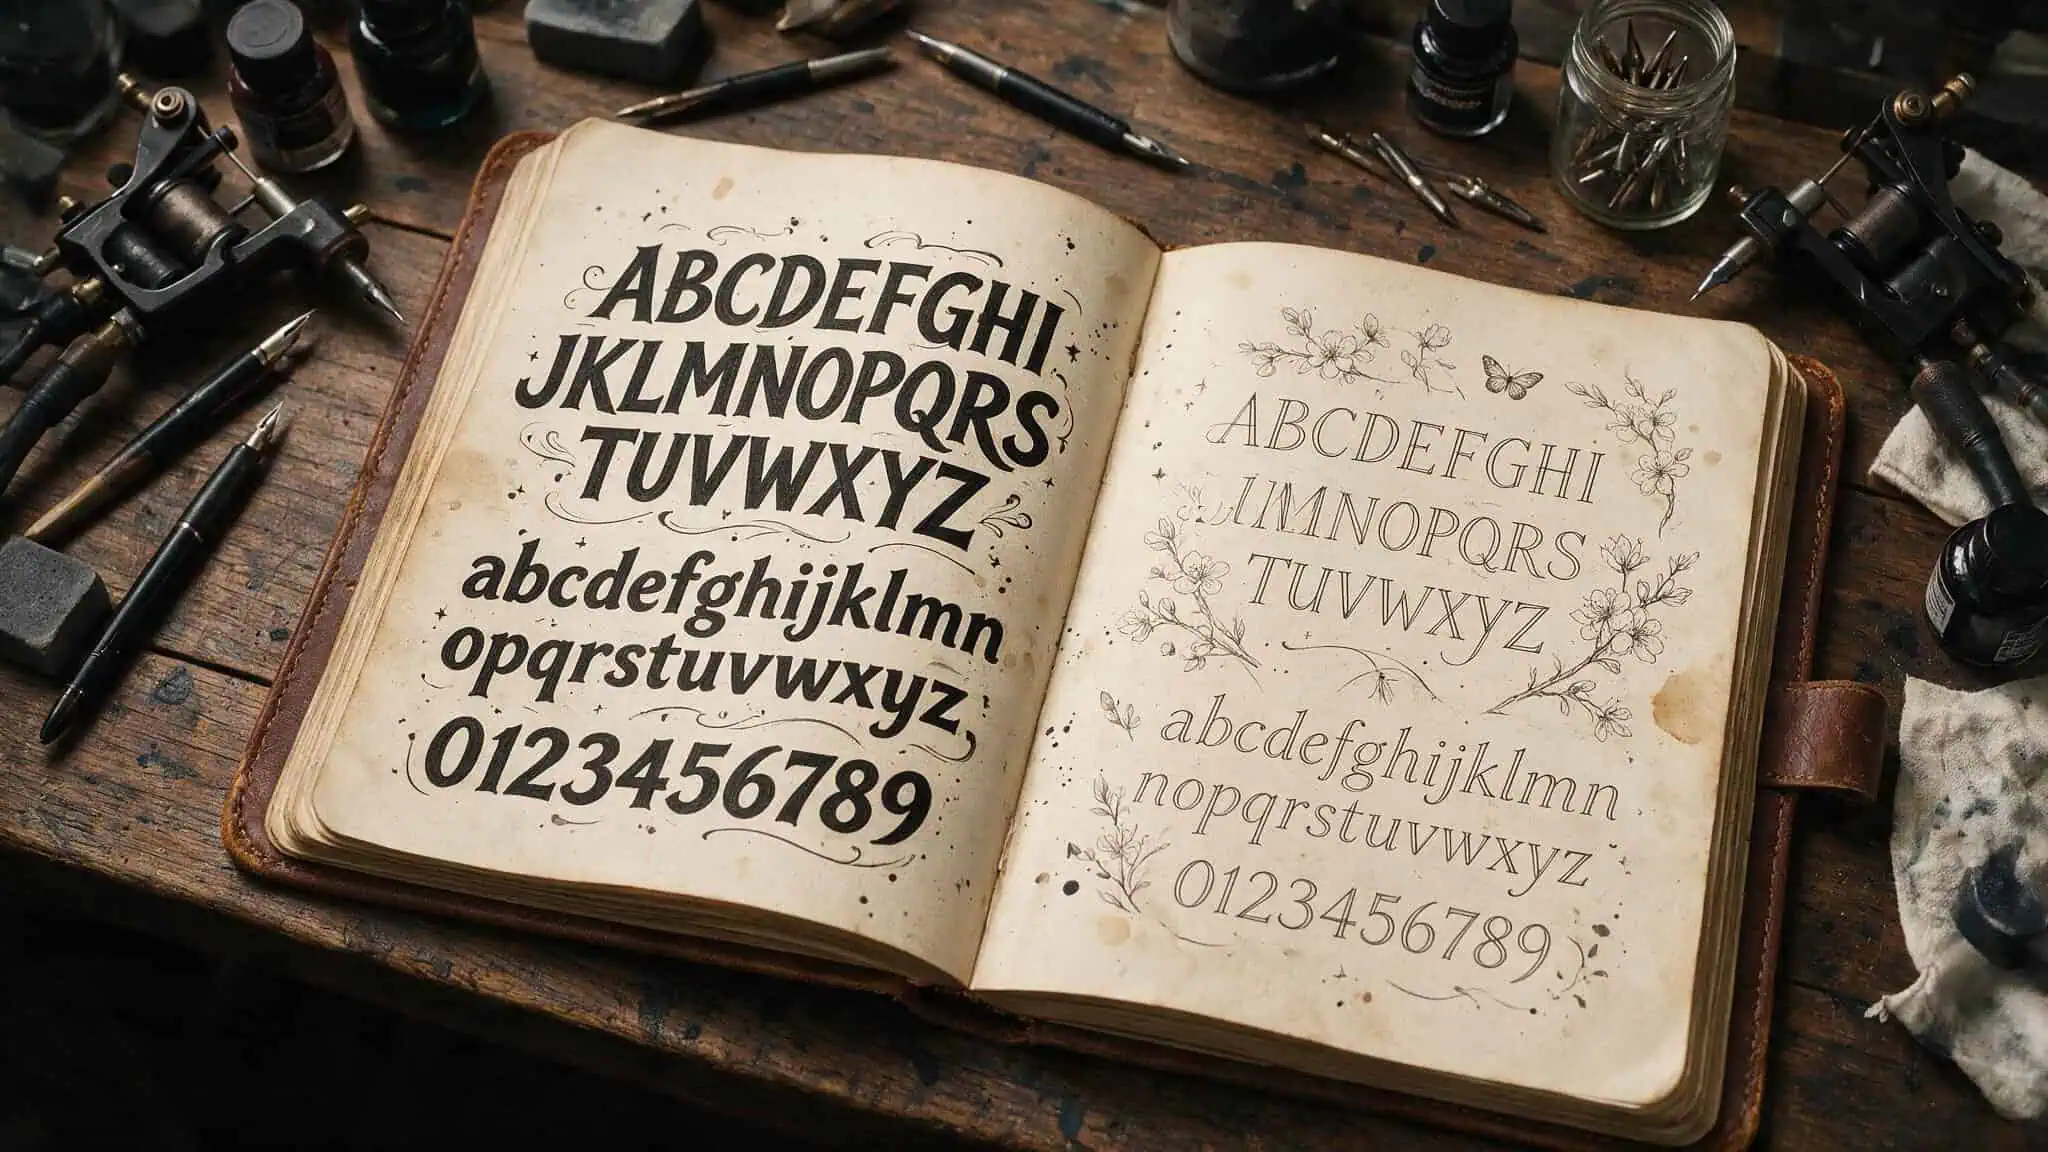 ABCDEFGHI
JKLMNOPQRS
TUVWXYZ
abcdefghijklmn
opqrstuvwxyz
0123456789
ABCDEFGHI
IJMNOPQRS
TUVWXYZ
abcdefghijklmn
nopqrstuvwxyz
0123456789